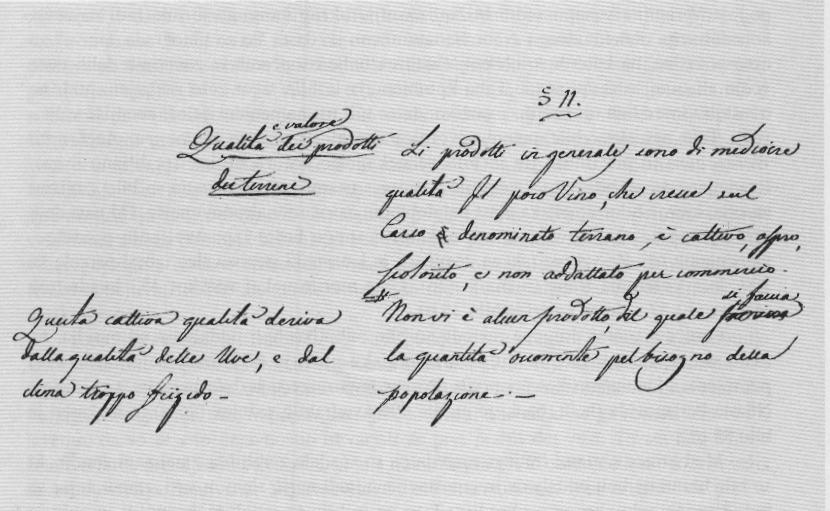 § 11.
e valore
Qualità dei prodotti
dei terreni
Li prodotti in generale sono di mediocre
qualità Il poco Vino, che cresce sul
Carso denominato terrano, è cattivo, aspro,
scolorito, e non addattato per commercio.
Questa cattiva qualità deriva
dalla qualità delle Uve, e dal
clima troppo frigido –
di faccia
Non vi è alcun prodotto, del quale
la quantità occorrente pel bisogno della
popolazione. –